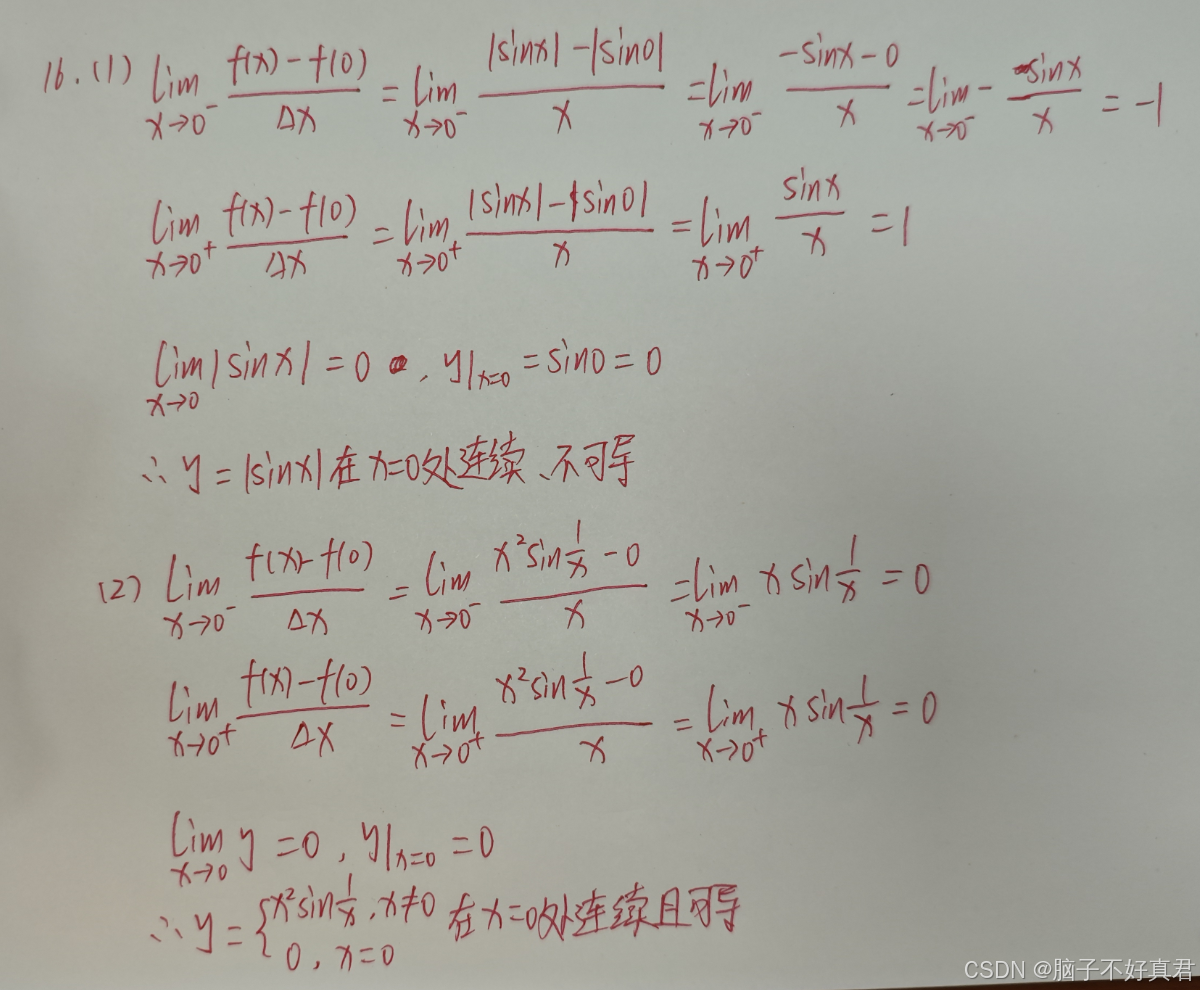 16.(1) lim_{x→0⁻} (f(x)-f(0))/Δx = lim_{x→0⁻} (|sinx|-|sin0|)/x = lim_{x→0⁻} (-sinx-0)/x = lim_{x→0⁻} - sinx/x = -1
lim_{x→0⁺} (f(x)-f(0))/Δx = lim_{x→0⁺} (|sinx|-|sin0|)/x = lim_{x→0⁺} sinx/x = 1
lim_{x→0} |sinx| = 0 , y|_{x=0} = sin0 = 0
∴ y = |sinx| 在x=0处连续、不可导
(2) lim_{x→0⁻} (f(x)-f(0))/Δx = lim_{x→0⁻} (x²sin(1/x)-0)/x = lim_{x→0⁻} x sin(1/x) = 0
lim_{x→0⁺} (f(x)-f(0))/Δx = lim_{x→0⁺} (x²sin(1/x)-0)/x = lim_{x→0⁺} x sin(1/x) = 0
lim_{x→0} y = 0 , y|_{x=0} = 0
∴ y = { x²sin(1/x), x≠0 ; 0, x=0 在x=0处连续且可导
CSDN @脑子不好真君